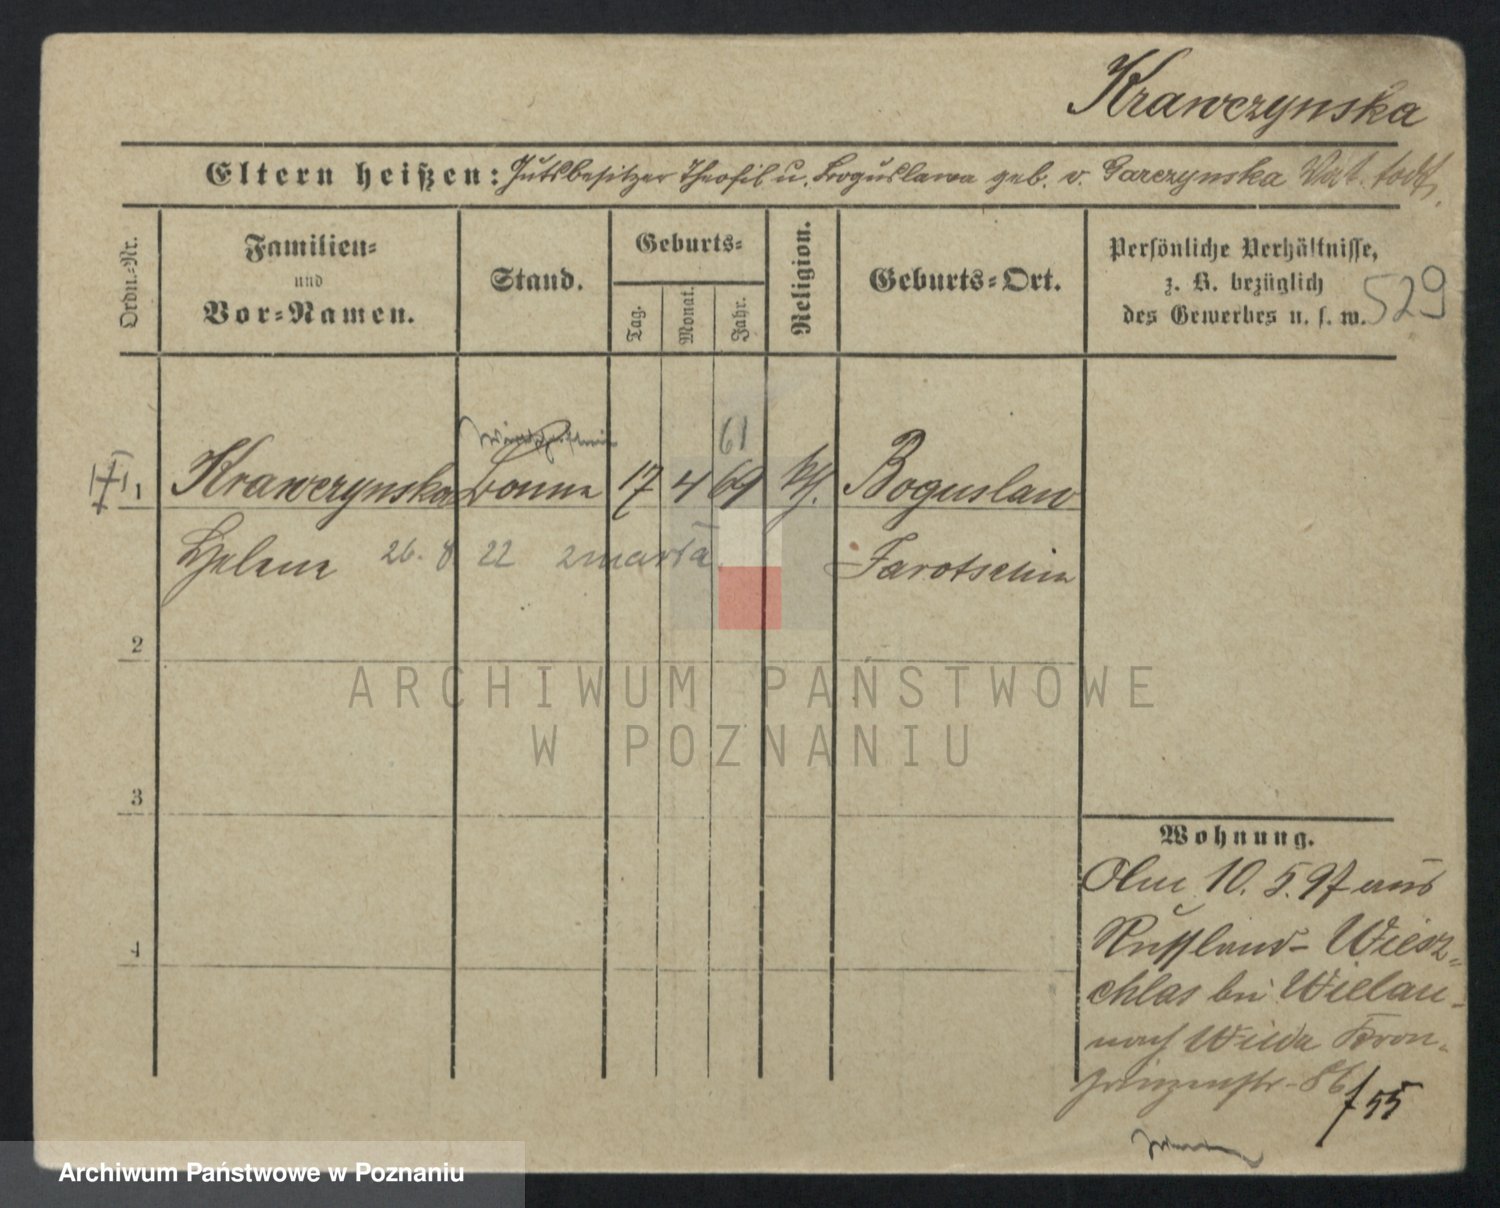 Krawczynska
Eltern heißen: Gutsbesitzer Theofil u. Boguslawa geb. v. Garczynska Vat. todt.
Ordn.-Nr.
Familien-
und
Vor-Namen.
Stand.
Geburts-
Tag.
Monat.
Jahr.
Religion.
Geburts-Ort.
Persönliche Verhältnisse,
z. B. bezüglich
des Gewerbes u. s. w.
529
61
1 Krawczynska Bonne 17 4 69 kth. Boguslaw
Helene 26. 8 22 zmarła Jarotschin
2
3
4
Wohnung.
10. 5. 97 aus
Russland- Wiesz-
chlas bei Wielau-
nach Wilda Kron-
prinzenstr. 86
f 55
ARCHIWUM PAŃSTWOWE
W POZNANIU
Archiwum Państwowe w Poznaniu